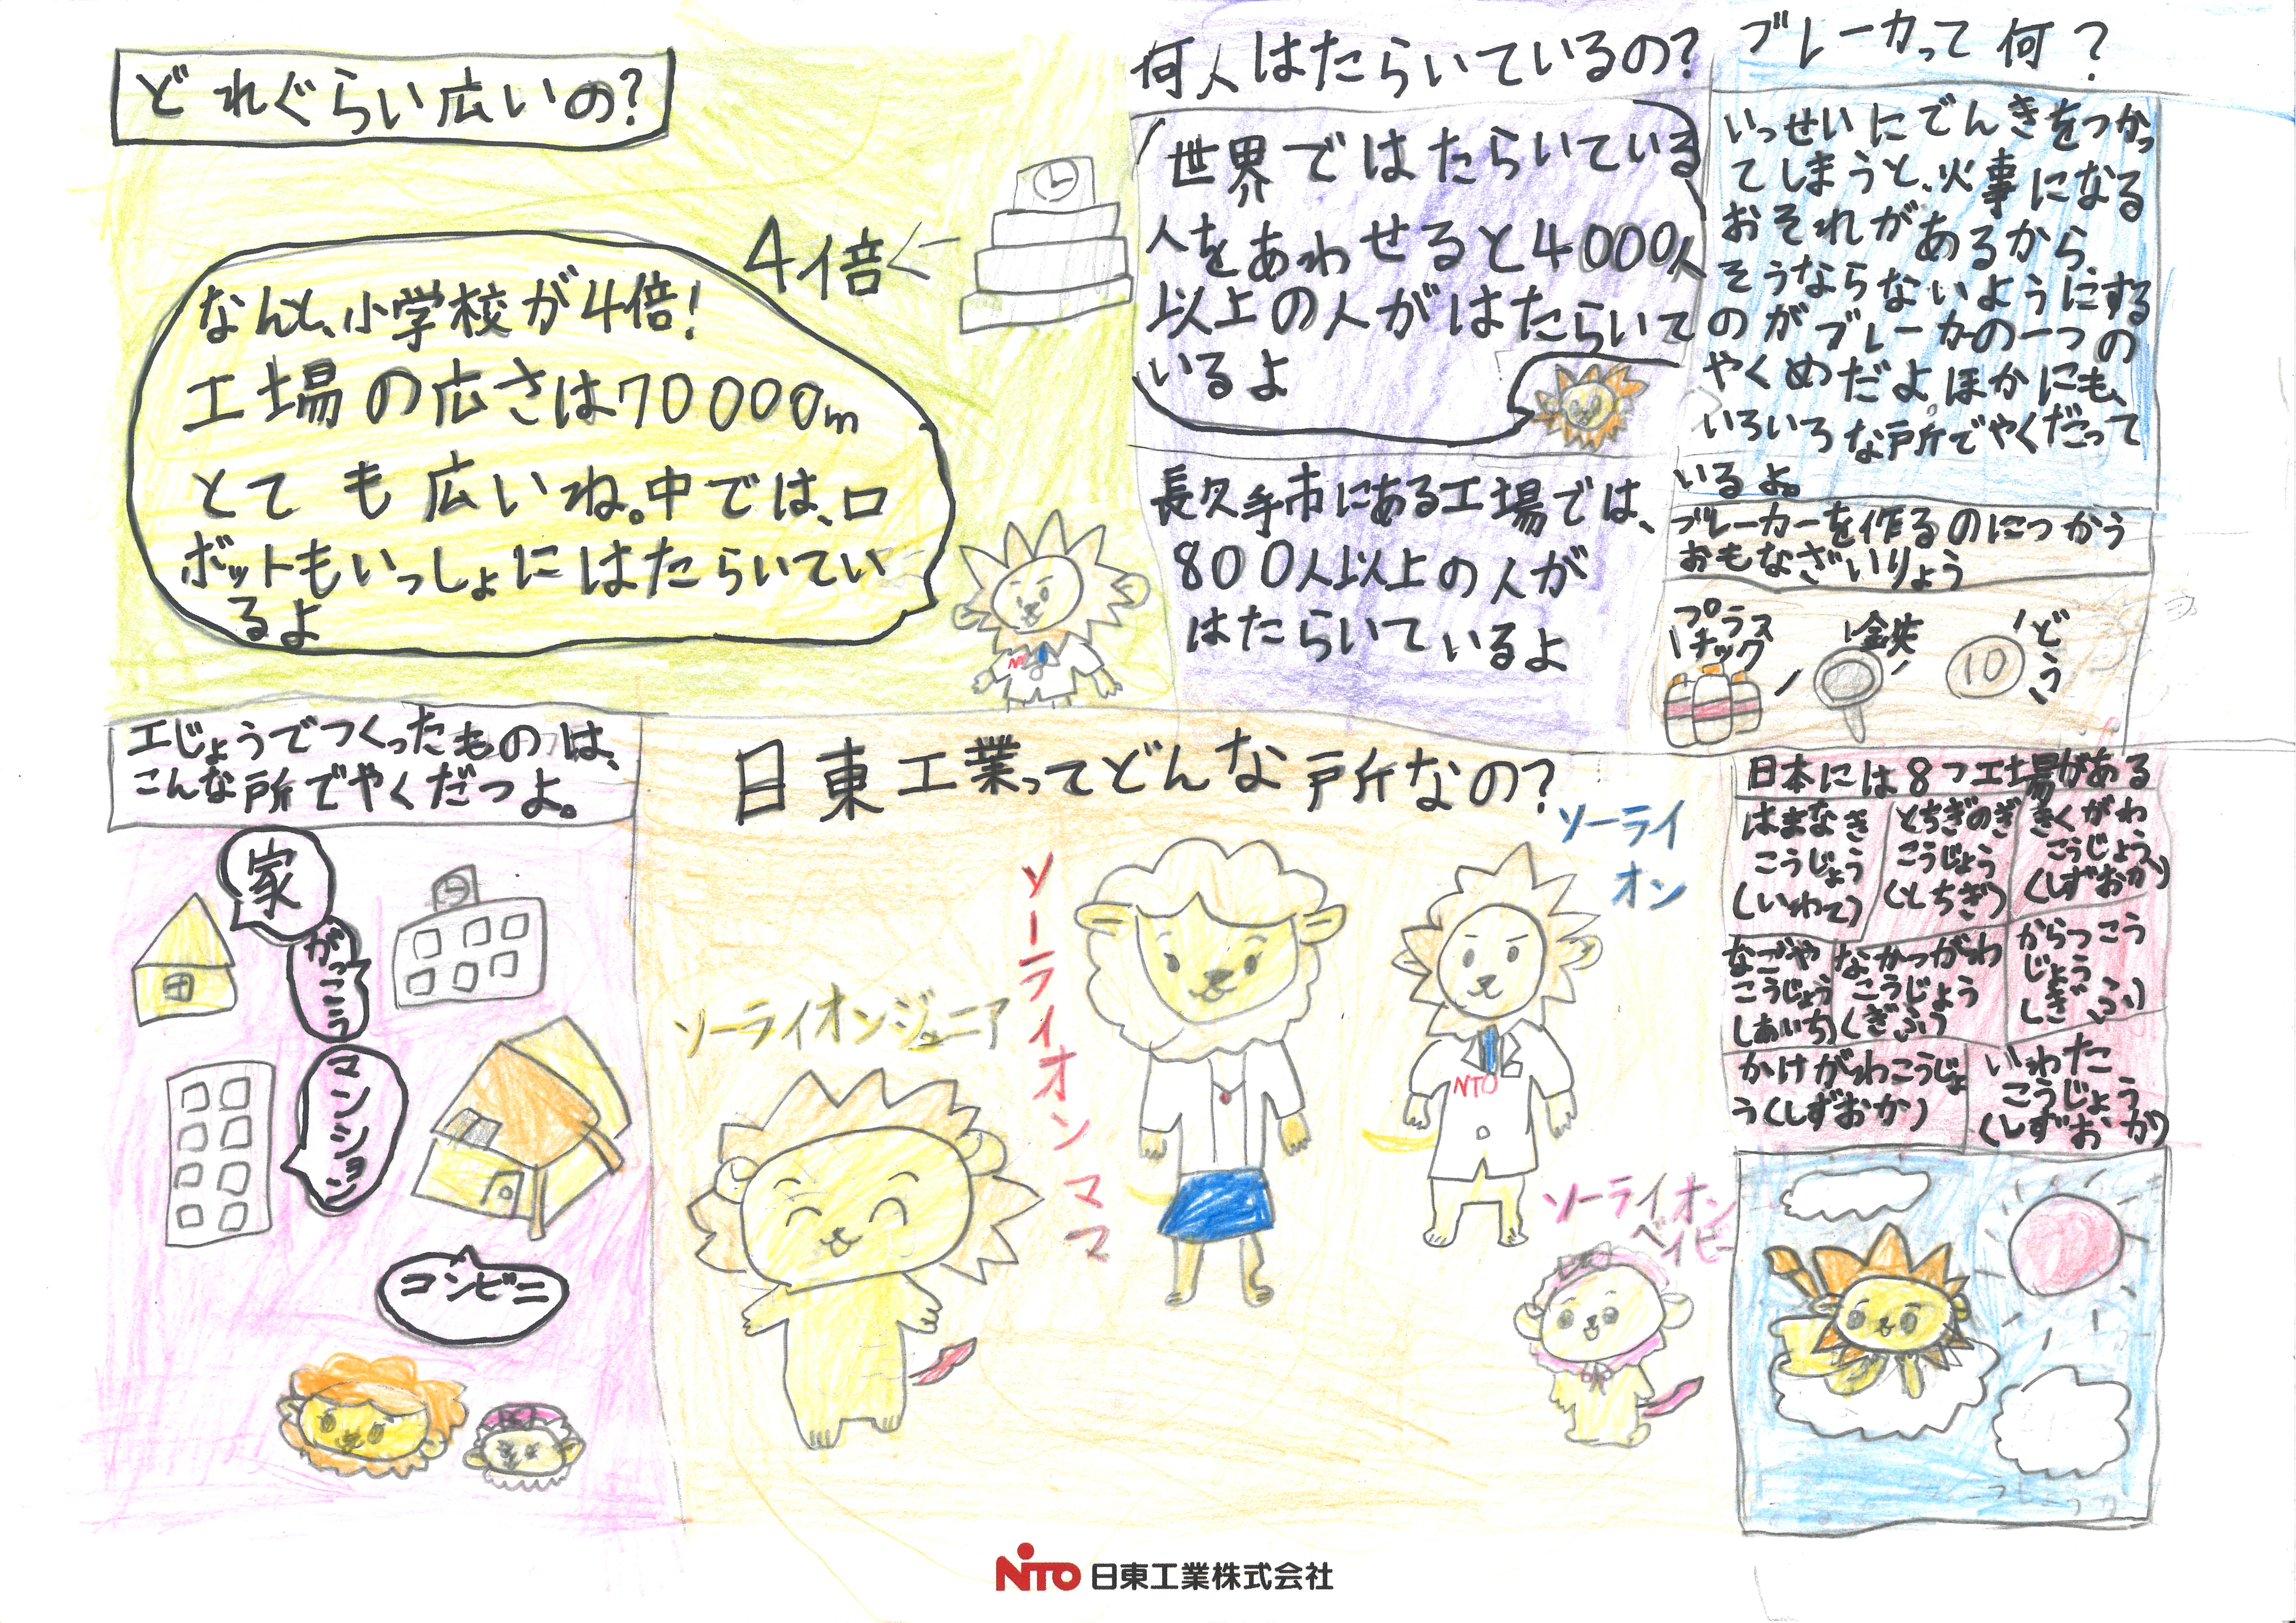 どれぐらい広いの?
なんと、小学校が4倍!
工場の広さは70000m
とても広いね。中では、ロ
ボットもいっしょにはたらいてい
るよ
4倍
何人はたらいているの?
世界ではたらいている
人をあわせると4000人
以上の人がはたらいて
いるよ
長久手市にある工場では、
800人以上の人が
はたらいているよ
ブレーカって何?
いっせいにでんきをつかっ
てしまうと、火事になる
おそれがあるから
そうならないようにする
のがブレーカの一つの
やくめだよほかにも、
いろいろな所でやくだって
いるよ。
ブレーカーを作るのにつかう
おもなざいりょう
プラス
チック
鉄
どう
10
工じょうでつくったものは、
こんな所でやくだつよ。
家
がっこう
マンション
コンビニ
日東工業ってどんな所なの?
ソーライオンジュニア
ソーライオンママ
ソーライ
オン
NTO
ソーライオン
ベイビー
日本には8つ工場がある
はまなき
こうじょう
(いわて)
とちぎのぎ
こうじょう
(とちぎ)
きくがわ
こうじょう
(しずおか)
なごや
こうじょう
(あいち)
なかつがわ
こうじょう
(ぎふ)
からつこう
じょう
(ぎふ)
かけがわこうじょ
う(しずおか)
いわた
こうじょう
(しずおか)
NITO 日東工業株式会社